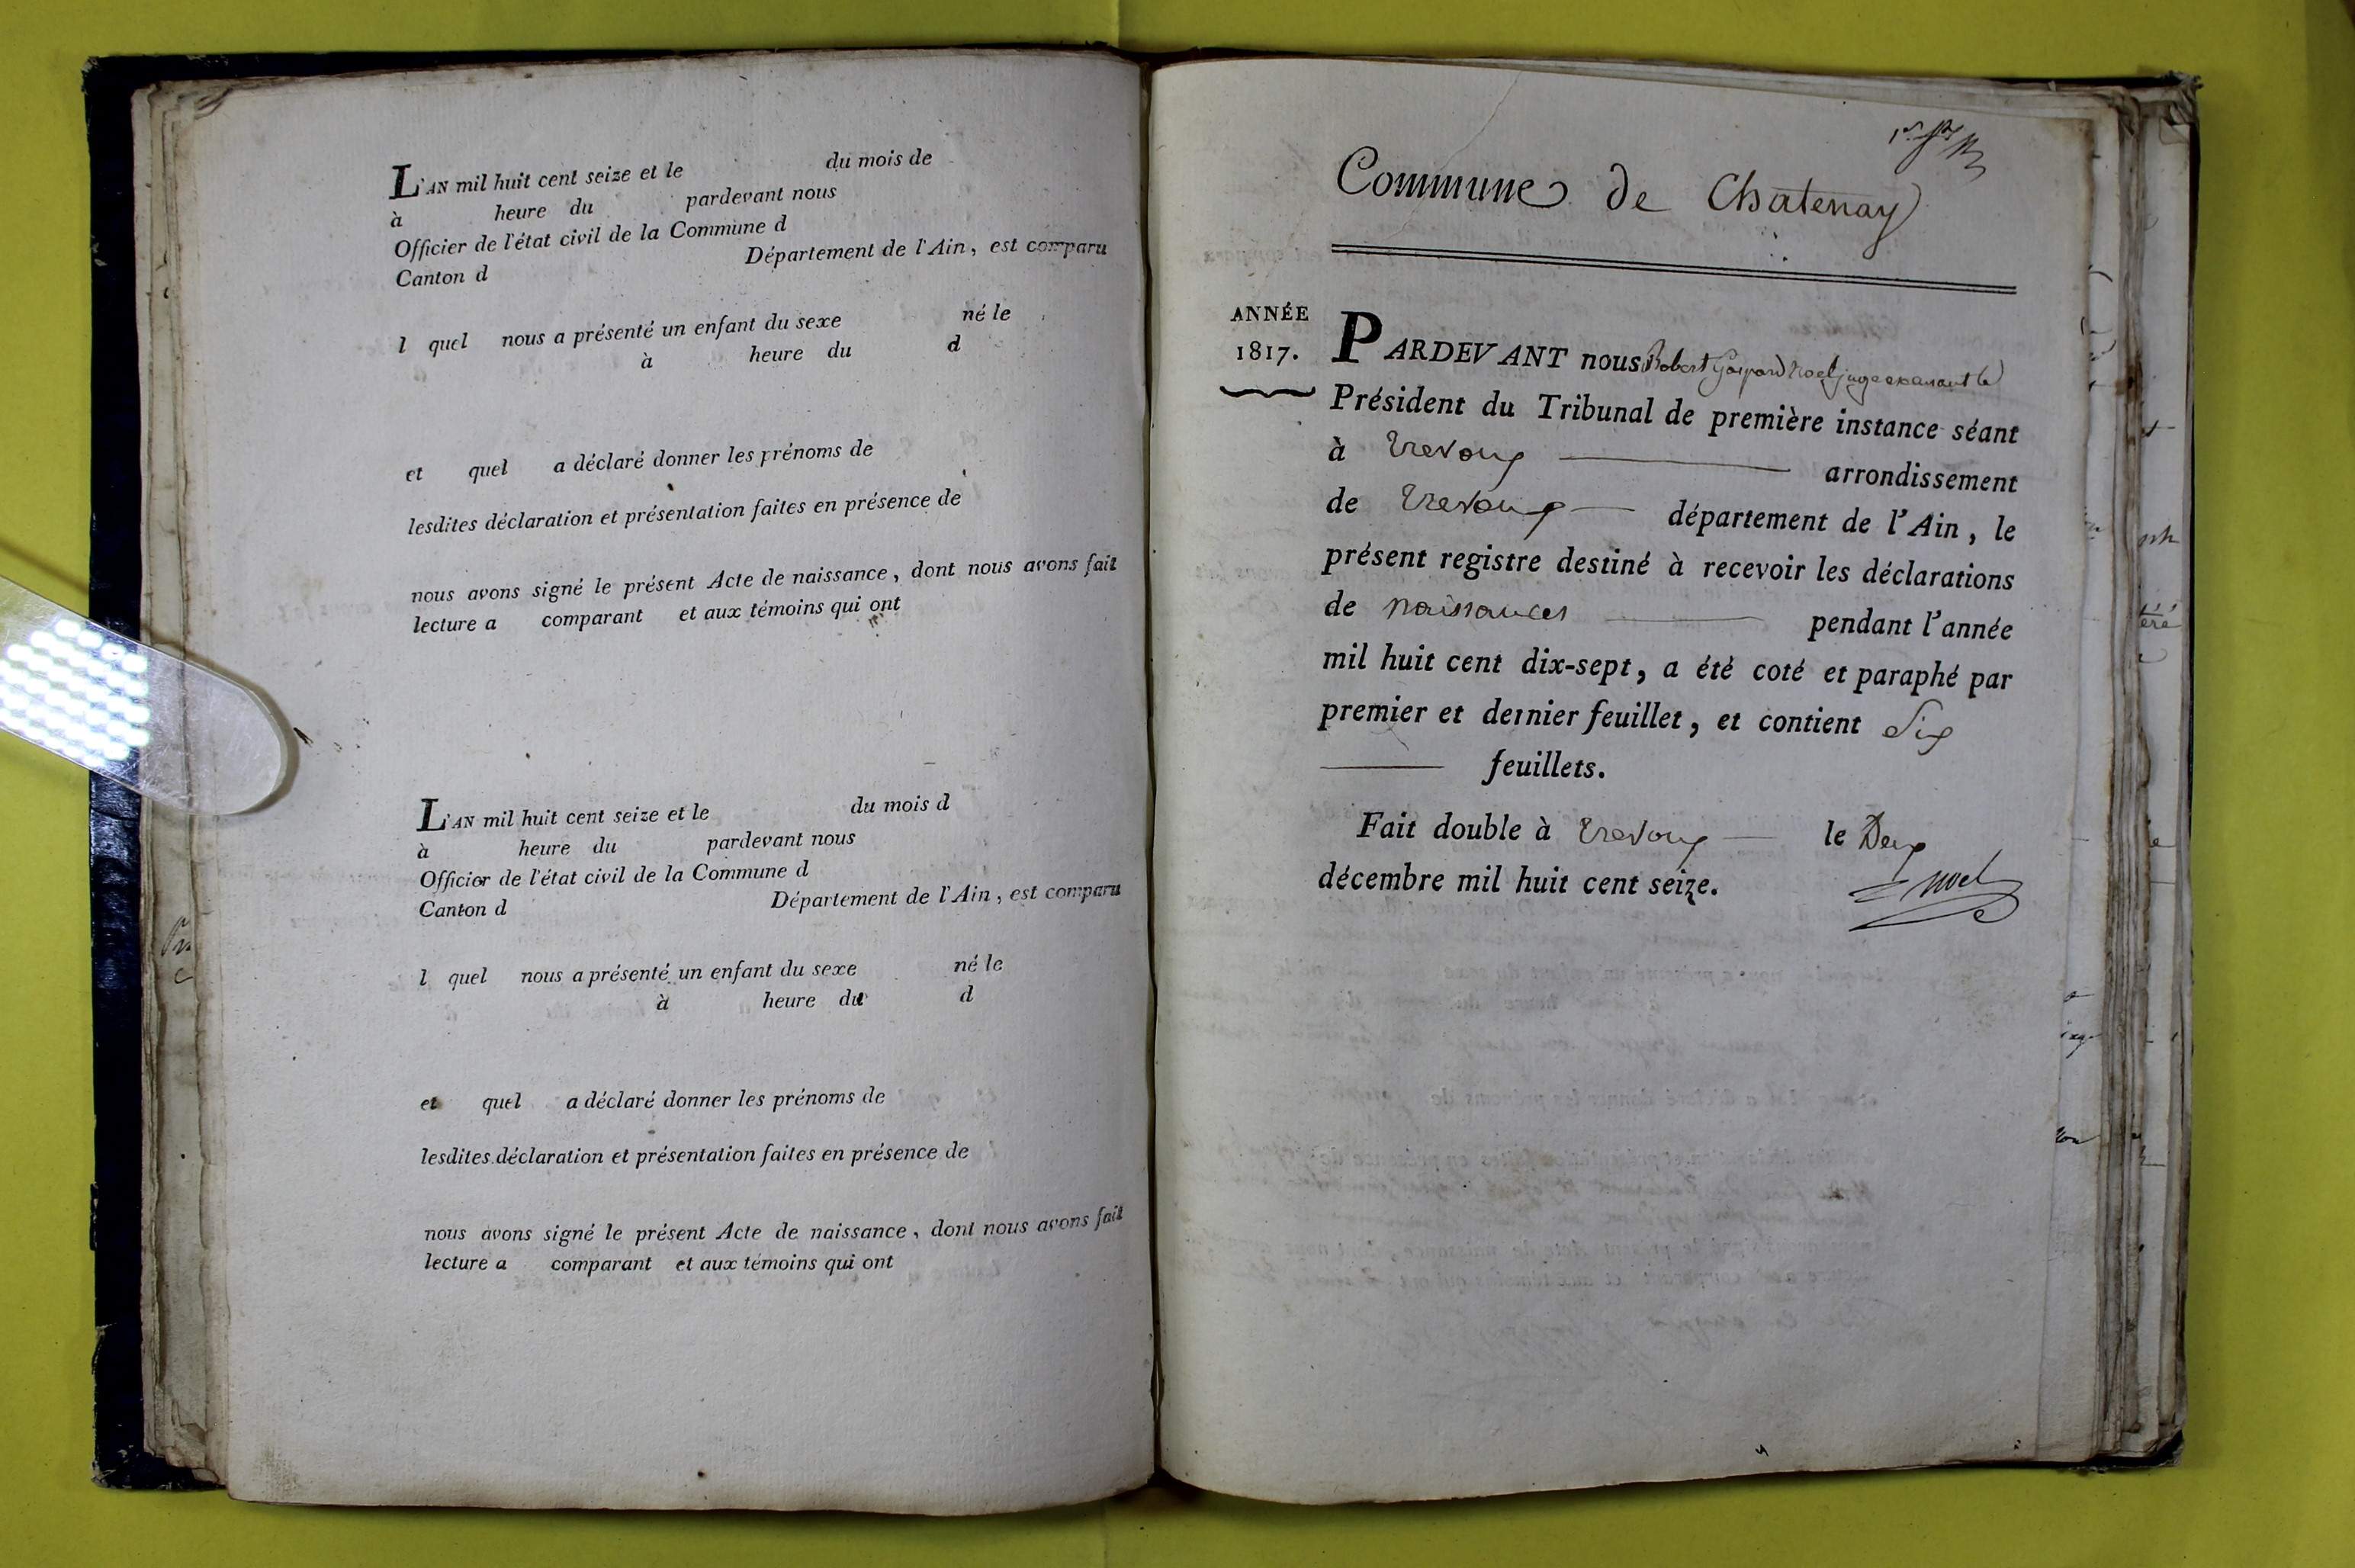 L'AN mil huit cent seize et le du mois de
à heure du pardevant nous
Officier de l'état civil de la Commune d
Canton d Département de l'Ain, est comparu
l quel nous a présenté un enfant du sexe né le
à heure du d
et quel a déclaré donner les prénoms de
lesdites déclaration et présentation faites en présence de
nous avons signé le présent Acte de naissance, dont nous avons fait
lecture a comparant et aux témoins qui ont
L'AN mil huit cent seize et le du mois d
à heure du pardevant nous
Officier de l'état civil de la Commune d
Canton d Département de l'Ain, est comparu
l quel nous a présenté un enfant du sexe né le
à heure du d
et quel a déclaré donner les prénoms de
lesdites déclaration et présentation faites en présence de
nous avons signé le présent Acte de naissance, dont nous avons fait
lecture a comparant et aux témoins qui ont
Commune de Chatenay
ANNÉE
1817.
PARDEVANT nous Robert Gaspard Noel juge
Président du Tribunal de première instance séant
à Trevoux arrondissement
de Trevoux département de l'Ain, le
présent registre destiné à recevoir les déclarations
de naissances pendant l'année
mil huit cent dix-sept, a été coté et paraphé par
premier et dernier feuillet, et contient Six
feuillets.
Fait double à Trevoux le Deux
décembre mil huit cent seize.
Noel